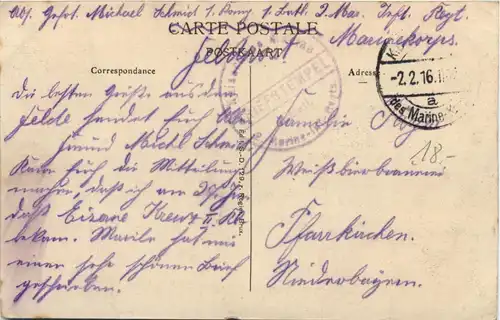 Abs. Gefrt. Michael Schmid 1. Komp. 1. Batl. 2. Mar. Inft. Regt.
CARTE POSTALE
Marinekorps.
POSTKAART
Feldpost
Correspondance
Adresse
BRIEFSTEMPEL
-2.2.16.
a
des Marine-
Die besten Grüße aus dem
Felde sendet Euch
Freund Michl Schmid
Kann Euch die Mitteilung
machen, daß ich am
das Eiserne Kreuz II. Kl.
bekam. Marile hat mir
einen sehr schönen Brief
geschrieben.
Familie
Weißbierbrauerei
18.-
Pfarrkirchen.
Niederbayern.